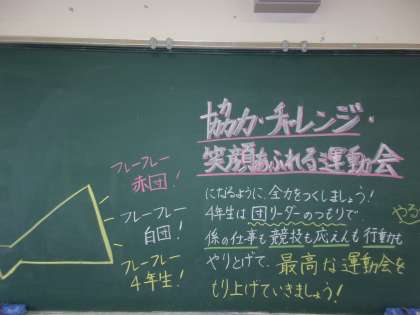 協力・チャレンジ・
笑顔あふれる運動会
になるように、全力をつくしましょう!
4年生は団リーダーのつもりで、
係の仕事も競技も応えんも行動も
やりとげて、最高な運動会を
もり上げていきましょう!
フレーフレー
赤団!
フレーフレー
白団!
フレーフレー
4年生!